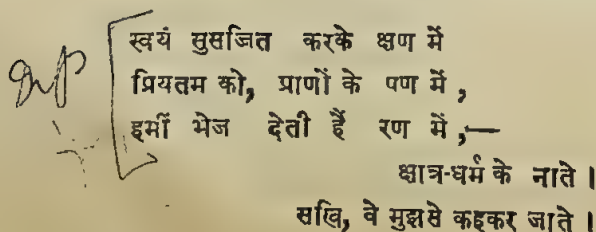 स्वयं सुसज्जित करके क्षण में
प्रियतम को, प्राणों के पण में,
हमीं भेज देती हैं रण में,—
क्षात्र-धर्म के नाते।
सखि, वे मुझसे कहकर जाते।